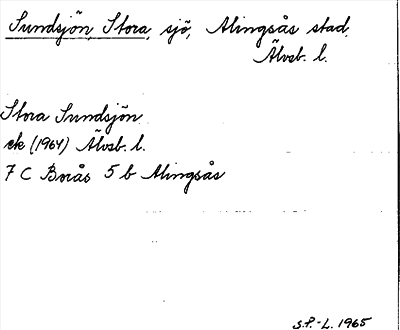 Sundsjön, Stora, sjö, Alingsås stad,
Älvsb. l.
Stora Sundsjön
ek (1964) Älvsb. l.
7 C Borås 5 b Alingsås
S.P.-L. 1965